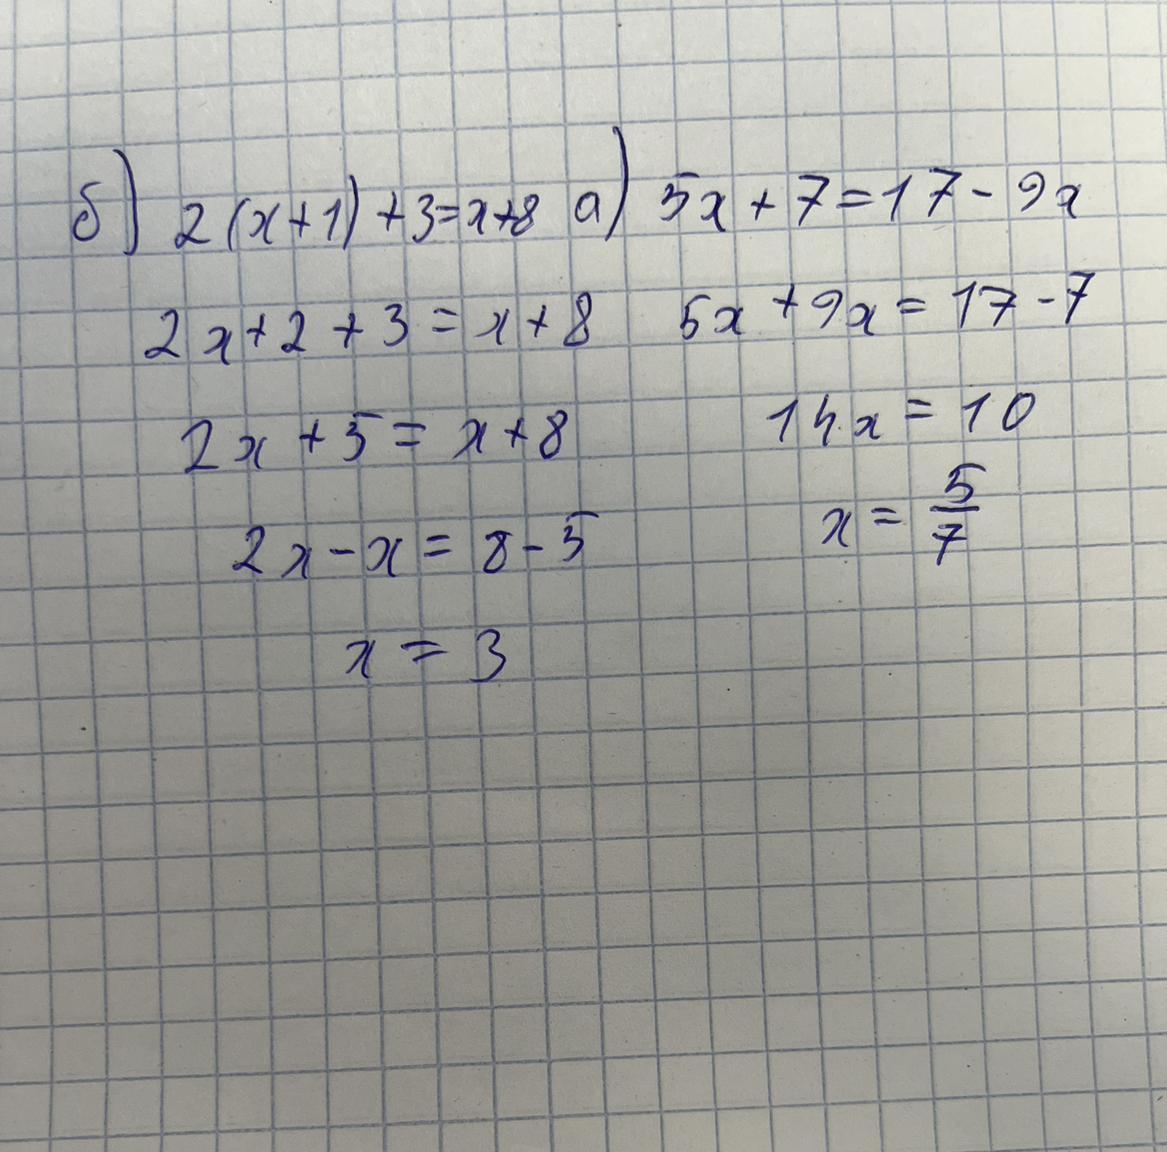 б) 2(x+1)+3=x+8
2x+2+3=x+8
2x+5=x+8
2x-x=8-5
x=3
а) 5x+7=17-9x
5x+9x=17-7
14x=10
x=5/7